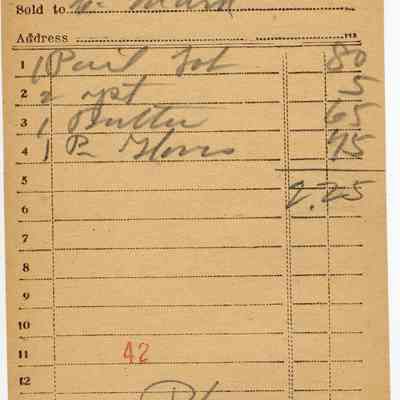 Sold to
Address
1 1 Pail 80
2 2 5
3 1 Butter 65
4 1 P. Gloves 75
5 2.25
6
7
8
9
10
11 42
12